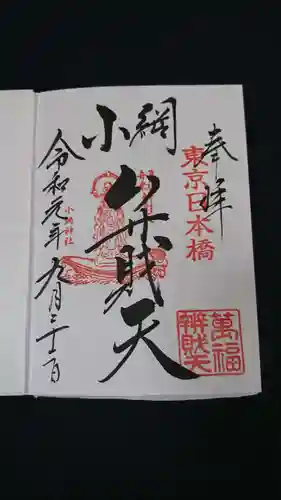 奉拝
東京日本橋
小網
弁財天
萬福
辨財天
小網神社
令和元年九月二十一日